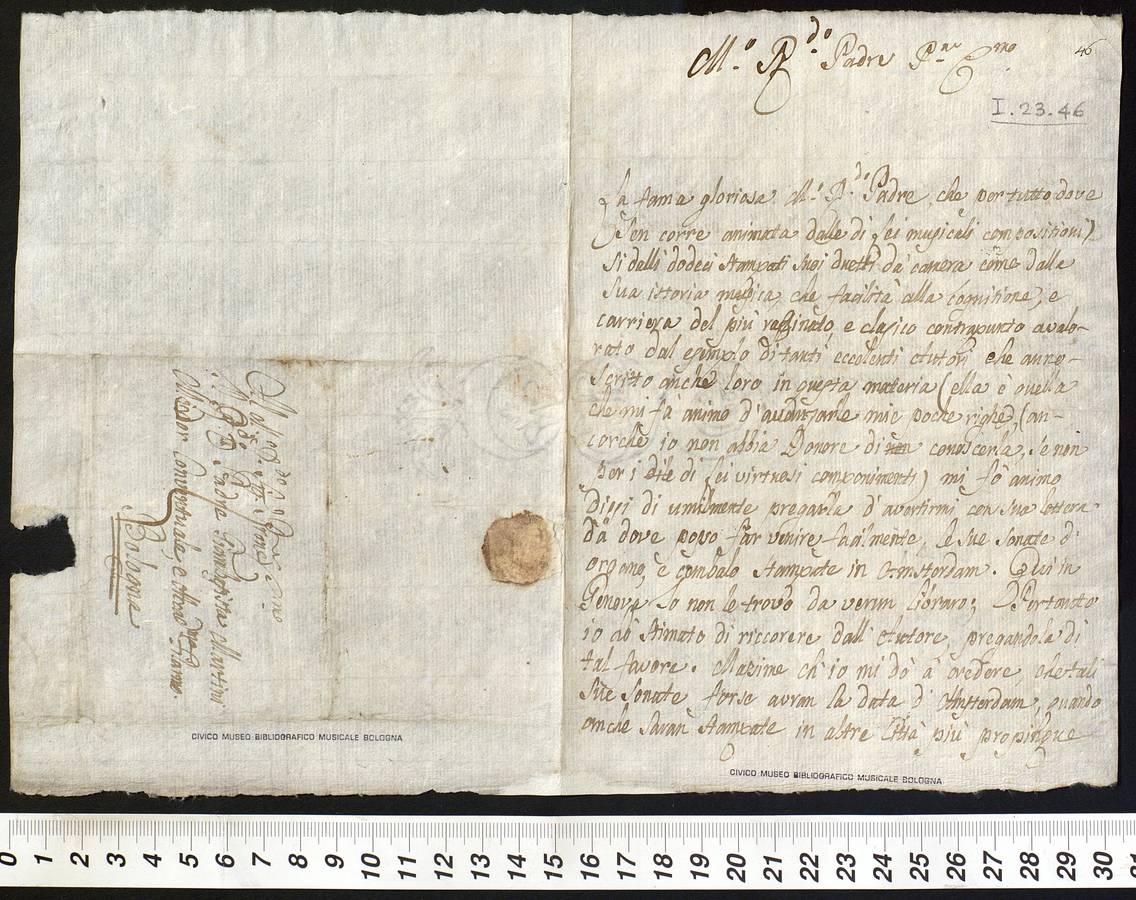 M.º R.do Padre P.ne
46
I.23.46
La fama gloriosa M.º R.do Padre, che per tutto, dove
sen corre animata dalle di Lei musicali compositioni,
si delli dodeci stampati suoi duetti da camera come dalla
sua istoria musica, che facilità alla cognitione, e
carriera del più raffinato, e clasico contrapunto avalo-
rato dal esempio di tanti eccelenti Autori che anno
scritto anche loro in questa materia (ella è quella
che mi fà animo d'avanzarle mie poche righe, (an-
corche io non abbia l'onore di conoscerla, se non
per i di Lei virtuosi componimenti) mi fò animo
dissi di umilmente pregarla d'avertirmi con sua lettera
da dove posso far venire facilmente, le sue sonate d'
organo, e cembalo stampate in Amsterdam. Qui in
Genova Io non le trovo da verun libraro; Pertanto
io aò stimato di riccorere dall'Autore, pregandola di
tal favore. Massime ch'io mi dò à credere, che tali
sue sonate forse avran la data d'Amsterdam, quando
anche saran stampate in altre Città più propinque
Padre Giambattista Martini
Minor Conventuale, e
Bologna
CIVICO MUSEO BIBLIOGRAFICO MUSICALE BOLOGNA
CIVICO MUSEO BIBLIOGRAFICO MUSICALE BOLOGNA
0 1 2 3 4 5 6 7 8 9 10 11 12 13 14 15 16 17 18 19 20 21 22 23 24 25 26 27 28 29 30